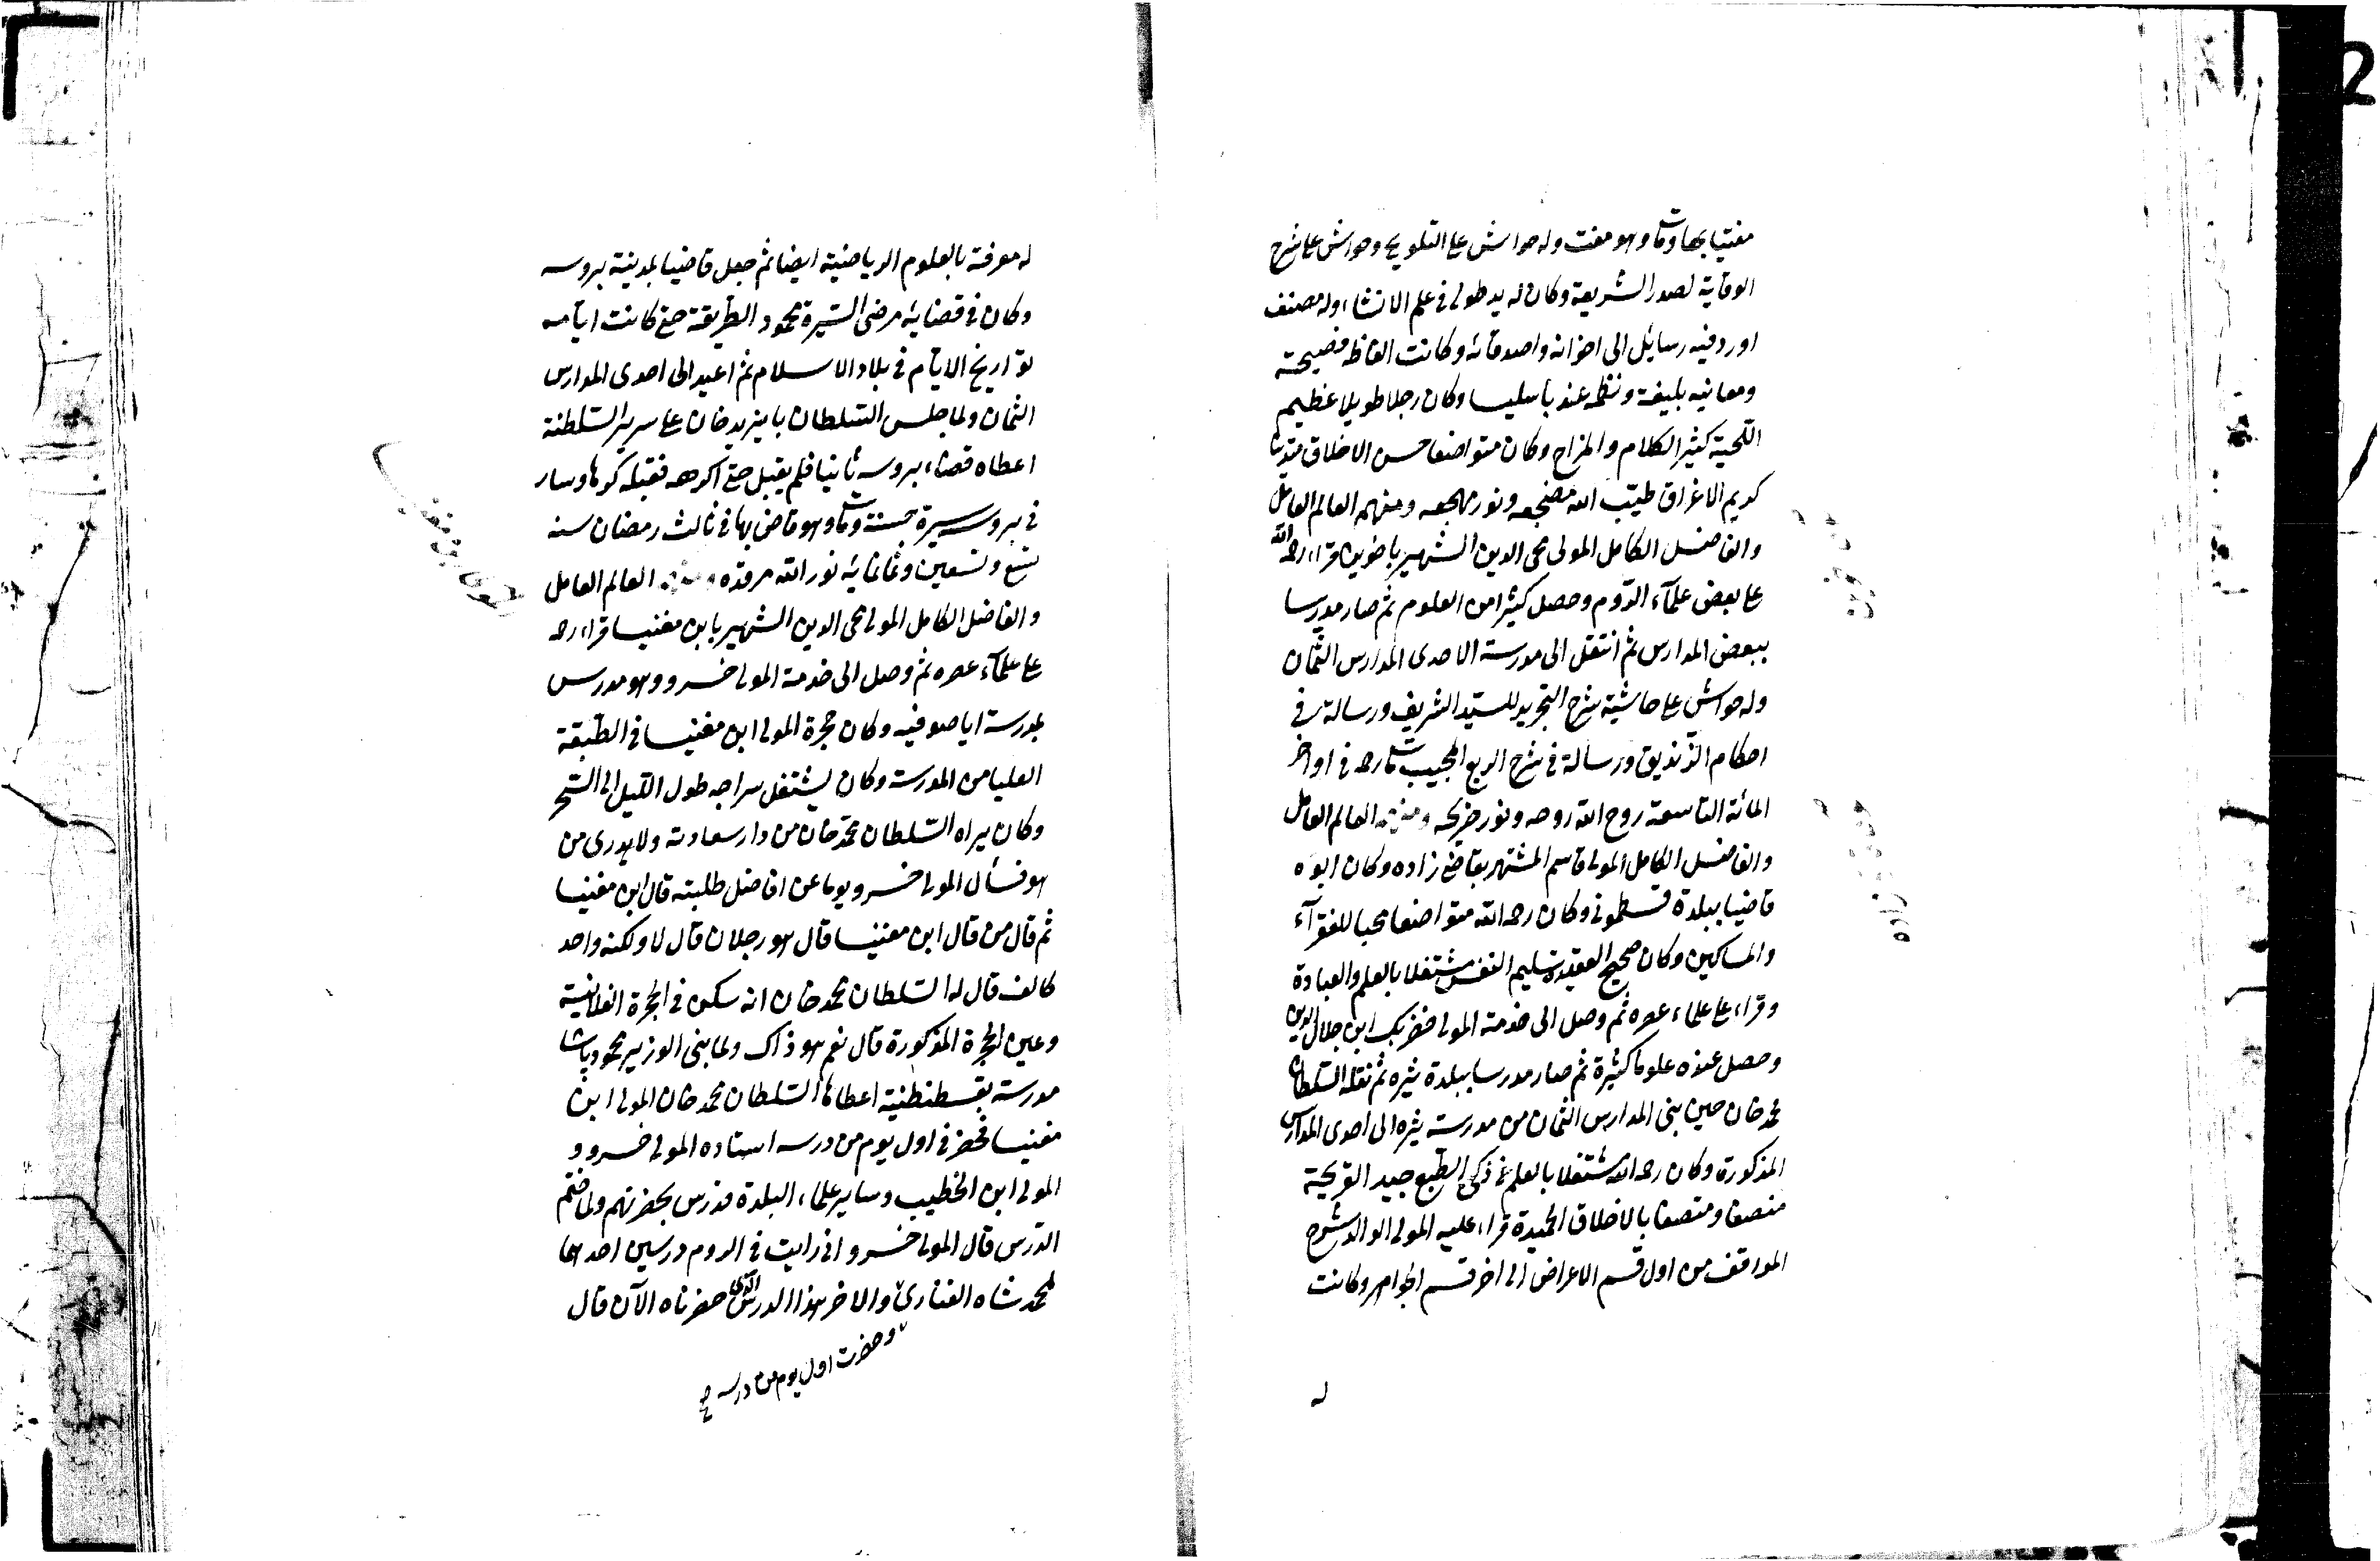 مفتيا بها ومات وهو مفت وله حواش على التلويح وحواش على شرح
الوقاية لصدر الشريعة وكان له يد طولى في علم الانشاء وله مصنف
اورد فيه رسايل الى اخوانه واصدقائه وكانت الفاظه فصيحة
ومعانيه بليغة ونظمه عذبا سليسا وكان رجلا طويلا عظيم
اللحية كثير الكلام والمزاح وكان متواضعا حسن الاخلاق
كريم الاعراق طيب الله مضجعه ونور مهجعه ومنهم العالم العامل
والفاضل الكامل المولى محي الدين الشهير باخوين قراء رحمه الله
على بعض علماء الروم وحصل كثيرا من العلوم ثم صار مدرسا
ببعض المدارس ثم انتقل الى مدرسة الاحدى المدارس الثمان
وله حواش على حاشية شرح التجريد للسيد الشريف ورسالة في
احكام الزنديق ورسالة في شرح الربع المجيب مات رحمه في اواخر
المائة التاسعة روح الله روحه ونور ضريحه ومنهم العالم العامل
والفاضل الكامل المولى قاسم المشتهر بقاضي زاده وكان ابوه
قاضيا ببلدة قسطموني وكان رحمه الله متواضعا محبا للفقرآء
والمساكين وكان صحيح العقيدة سليم النفس مشتغلا بالعلم والعبادة
وقراء على علماء عصره ثم وصل الى خدمة المولى خضر بك ابن جلال الدين
وحصل عنده علوما كثيرة ثم صار مدرسا ببلدة تيره ثم نقله السلطان
محمد خان حين بنى المدارس الثمان من مدرسة تيره الى احدى المدارس
المذكورة وكان رحمه الله مشتغلا بالعلم ذكي الطبع جيد القريحة
منصفا ومتصفا بالاخلاق الحميدة قراء عليه المولى الوالد شرح
المواقف من اول قسم الاعراض الى اخر قسم الجواهر وكانت
له
زاده
له معرفة بالعلوم الرياضية ايضا ثم جعل قاضيا بمدينة بروسه
وكان في قضائه مرضى السيرة محمود الطريقة حتى كانت ايامه
تواريخ الايام في بلاد الاسلام ثم اعيد الى احدى المدارس
الثمان ولما جلس السلطان بايزيد خان على سرير السلطنة
اعطاه قضاء بروسه ثانيا فلم يقبل حتى اكرهه فقبله كرها وسار
في بروسه سيرة حسنة ومات وهو قاض بها في ثالث رمضان سنه
تسع وتسعين وثمانمايه نور الله مرقده ومنهم العالم العامل
والفاضل الكامل المولى محى الدين الشهير بابن مغنيسا قراء رحمه
على علمآء عصره ثم وصل الى خدمة المولى خسرو وهو مدرس
بمدرسة ايا صوفيه وكان حجرة المولى ابن مغنيسا في الطبقة
العليا من المدرسة وكان يشتعل سراجه طول الليل الى السحر
وكان يراه السلطان محمد خان من دار سعادته ولا يدرى من
هو فسأل المولى خسرو يوما عن افاضل طلبته قال ابن مغنيسا
ثم قال من قال ابن مغنيسا قال هو رجلان قال لا ولكنه واحد
كالف قال له السلطان محمد خان انه سكن في الحجرة الفلانية
وعين الحجرة المذكورة قال نعم هو ذاك ولما بنى الوزير محمود پاشا
مدرسته بقسطنطنية اعطاها السلطان محمد خان المولى ابن
مغنيسا فحضر في اول يوم من درسه استاده المولى خسرو و
المولى ابن الخطيب وساير علماء البلدة فدرس بحضرتهم ولما ختم
الدرس قال المولى خسرو اني رايت في الروم درسين احدهما
لمحمد شاه الفنارى والاخر هذا الدرس الذي حضرناه الآن قال
وحضرت اول يوم من درسه صح